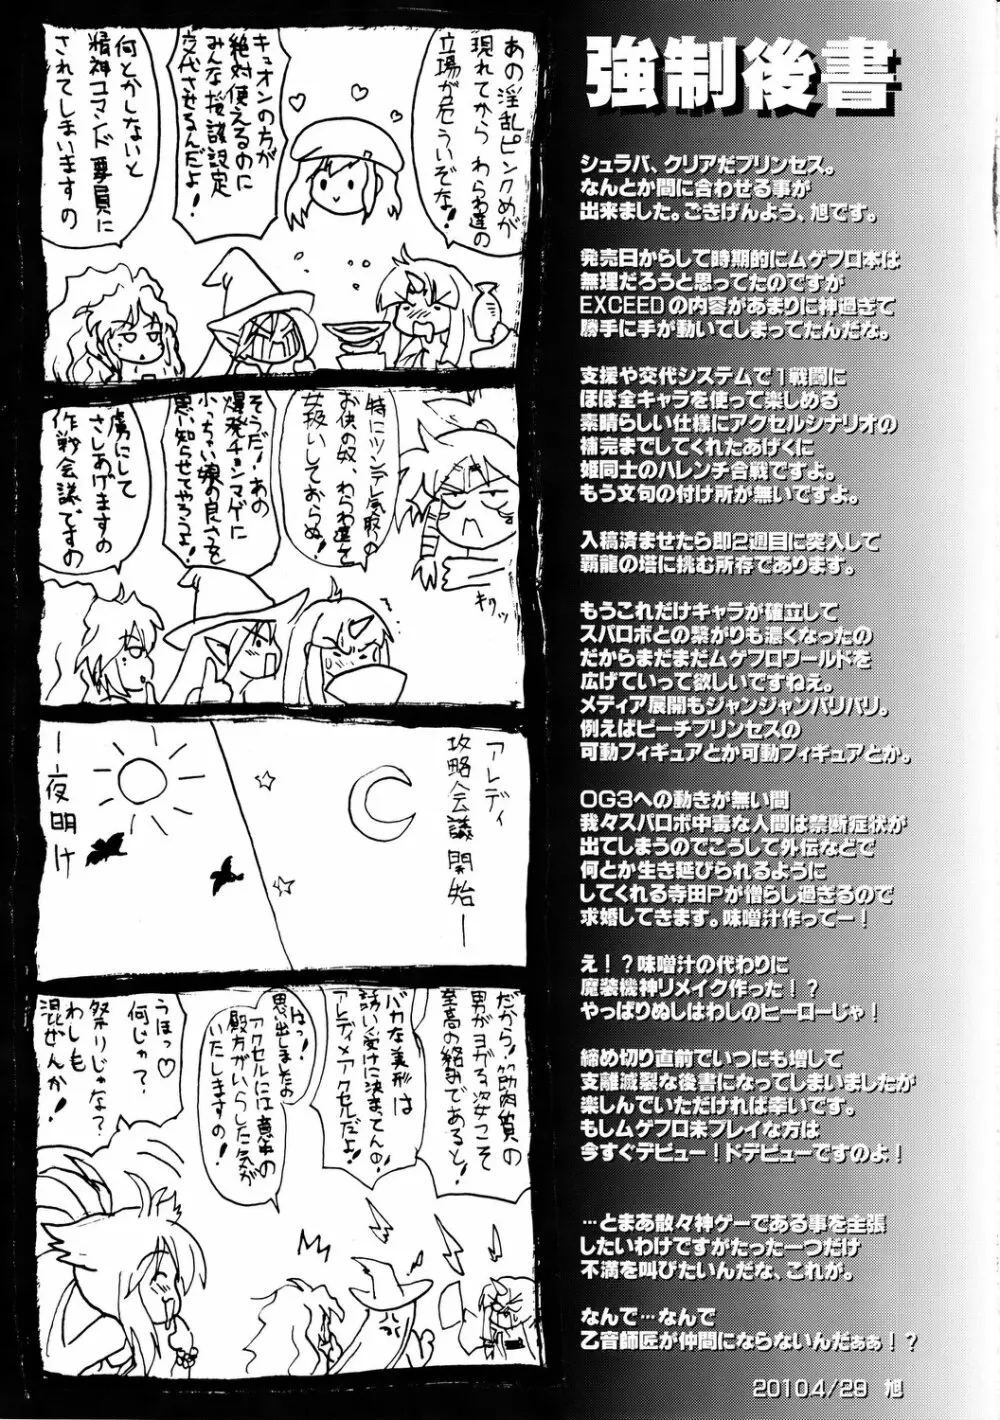 強制後書
シュラバ、クリアだプリンセス。
なんとか間に合わせる事が
出来ました。ごきげんよう、旭です。
発売日からして時期的にムゲフロ本は
無理だろうと思ってたのですが
EXCEEDの内容があまりに神過ぎて
勝手に手が動いてしまってたんだな。
支援や交代システムで1戦闘に
ほぼ全キャラを使って楽しめる
素晴らしい仕様にアクセルシナリオの
補完までしてくれたあげくに
姫同士のハレンチ合戦ですよ。
もう文句の付け所が無いですよ。
入稿済ませたら即2週目に突入して
覇龍の塔に挑む所存であります。
もうこれだけキャラが確立して
スパロボとの繋がりも濃くなったの
だからまだまだムゲフロワールドを
広げていって欲しいですねえ。
メディア展開もジャンジャンバリバリ。
例えばピーチプリンセスの
可動フィギュアとか可動フィギュアとか。
OG3への動きが無い間
我々スパロボ中毒な人間は禁断症状が
出てしまうのでこうして外伝などで
何とか生き延びられるように
してくれる寺田Pが憎らし過ぎるので
求婚してきます。味噌汁作ってー！
え！？味噌汁の代わりに
魔装機神リメイク作った！？
やっぱりぬしはわしのヒーローじゃ！
締め切り直前でいつにも増して
支離滅裂な後書になってしまいましたが
楽しんでいただければ幸いです。
もしムゲフロ未プレイな方は
今すぐデビュー！ドデビューですのよ！
…とまあ散々神ゲーである事を主張
したいわけですがたった一つだけ
不満を叫びたいんだな、これが。
なんで…なんで
乙音師匠が仲間にならないんだぁぁ！？
2010.4/29 旭
あの淫乱ピンクめが
現れてから わらわ達の
立場が危ういぞな！
キュオンの方が
絶対使えるのに
みんな桜談設定
交代させるんだよ！
何とかしないと
精神コマンド要員に
されてしまいますの
特にツンデレ気取の
お供の奴、わらわ達を
女扱いしておらぬ！
キリッ
そうだ！あの
爆発チョンマゲに
小っちゃい娘の良さを
思い知らせてやろうよ！
虜にして
さしあげますの
作戦会議ですの
アレディ
攻略会議開始―
―夜明け
だから！筋肉質の
男がヨガる姿こそ
至高の絡みであると！
バカな美形は
誘い受けに決まってんの！
アレディ×アクセルだよ！
はっ！
思い出しましたの
アクセルには意中の
殿方がいらした気が
いたしますの！
うほっ♡
何じゃ？
祭りじゃな？
わしも
混ぜんか！